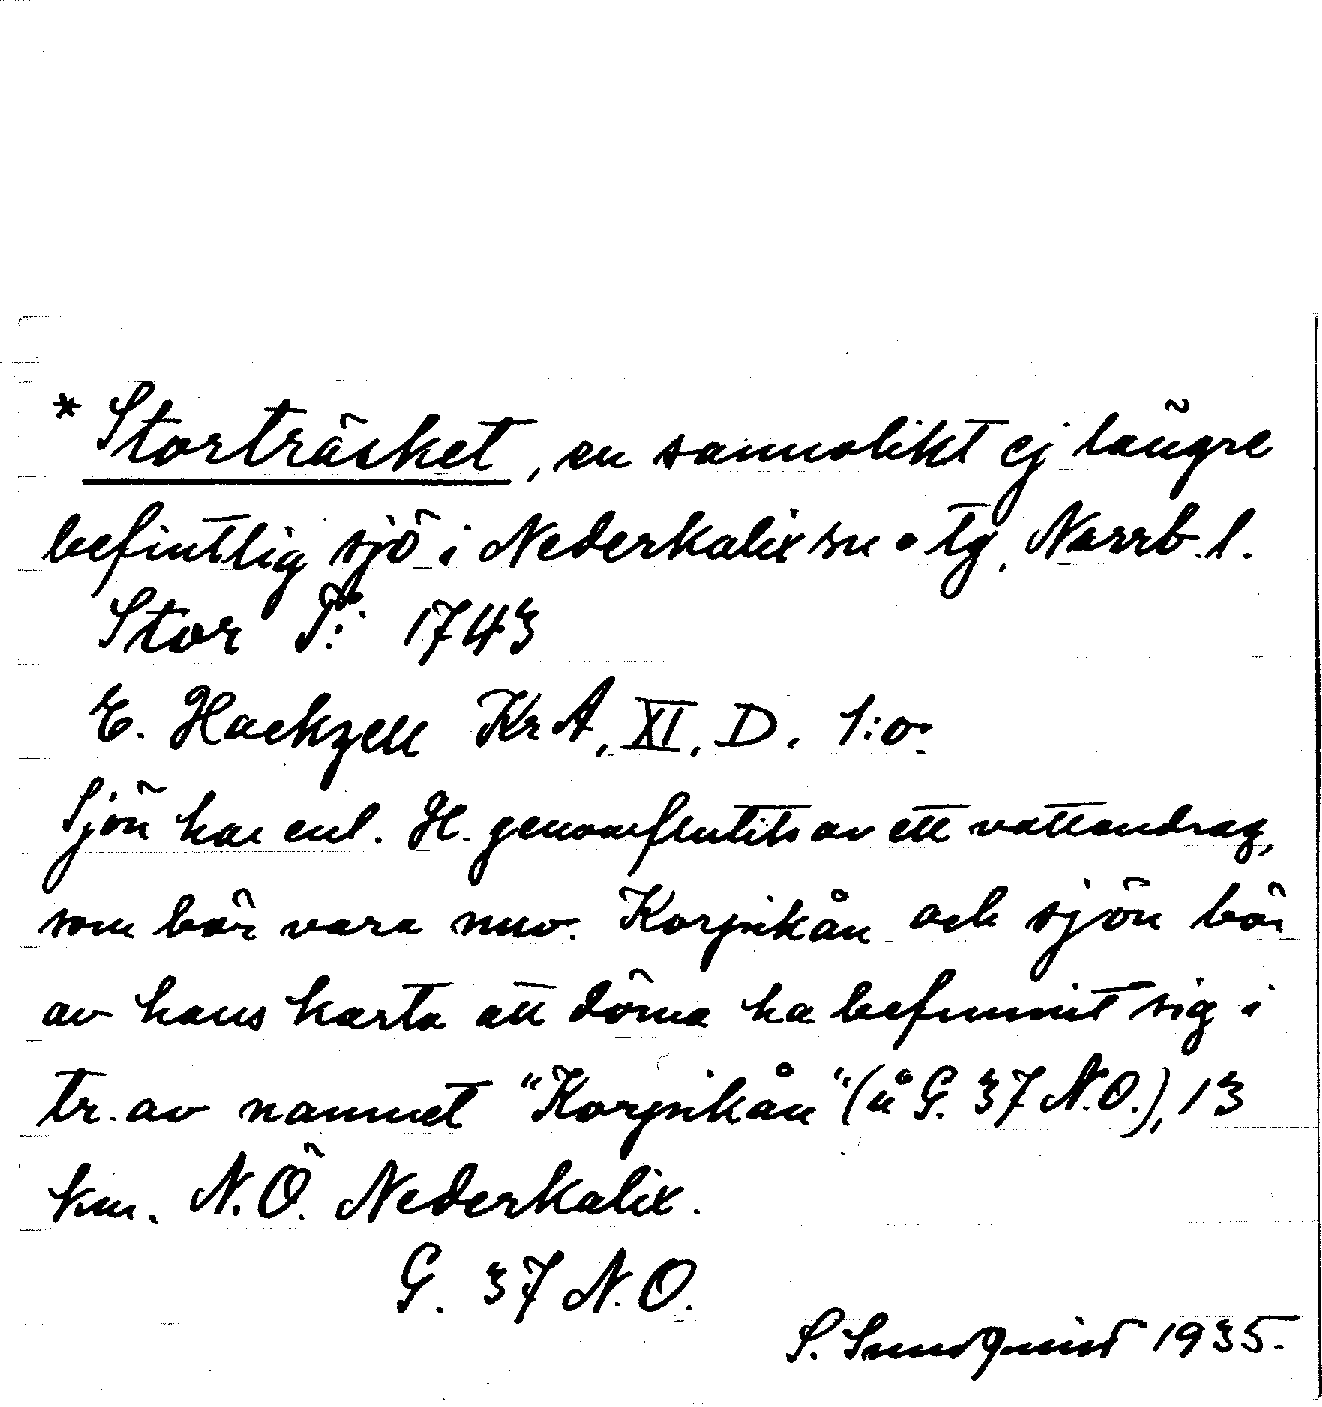 * Storträsket, en sannolikt ej längre
befintlig sjö i Nederkalix sn o tg, Norrb. l.
Stor T: 1743
E. Hackzell KrA, XI, D. 1:o.
Sjön har enl. H. genomflutits av ett vattendrag,
som bör vara nuv. Korpikån och sjön bör
av hans karta att döma ha befunnit sig i
tr. av namnet "Korpikån" (å G. 37 N.O.), 13
km. N.Ö. Nederkalix.
G. 37 N.O.
S. Sundquist 1935.